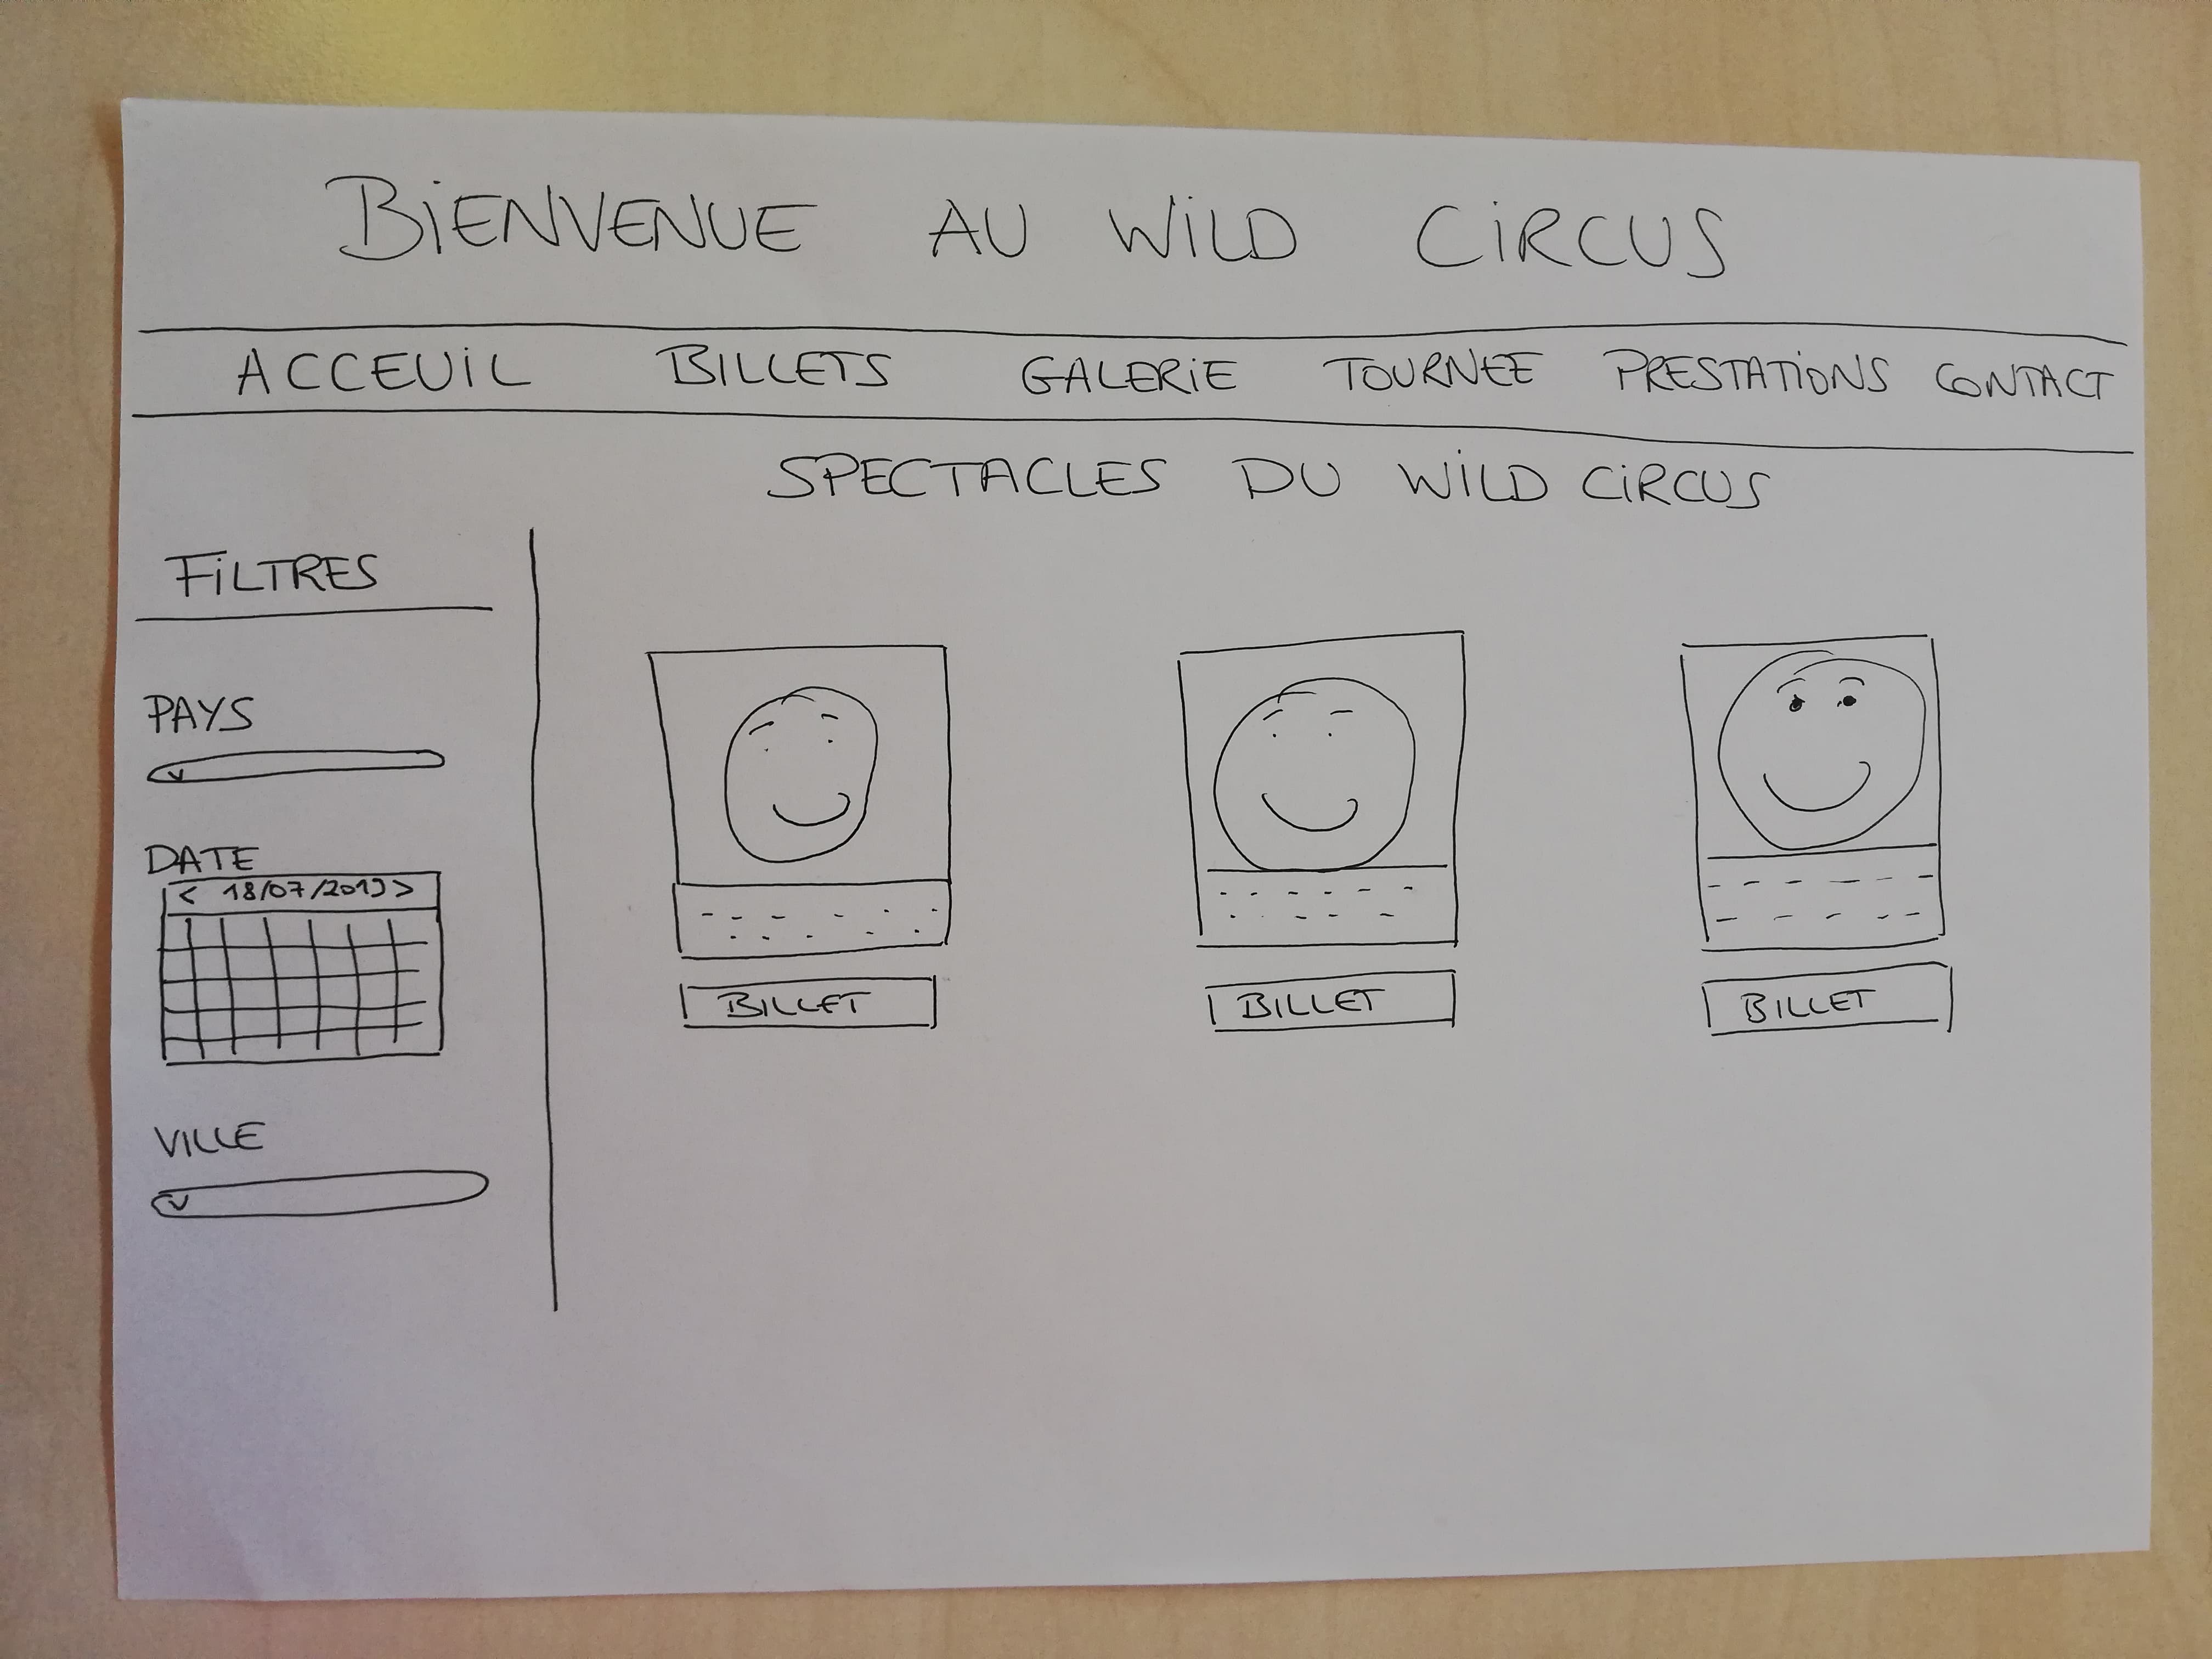 BiENVENUE AU WiLD CiRCUS
ACCEUiL BILLETS GALERiE TOURNEE PRESTATiONS CONTACT
SPECTACLES DU WiLD CiRCUS
FiLTRES
PAYS
DATE
< 18/07/2019 >
VILLE
BILLET BILLET BILLET